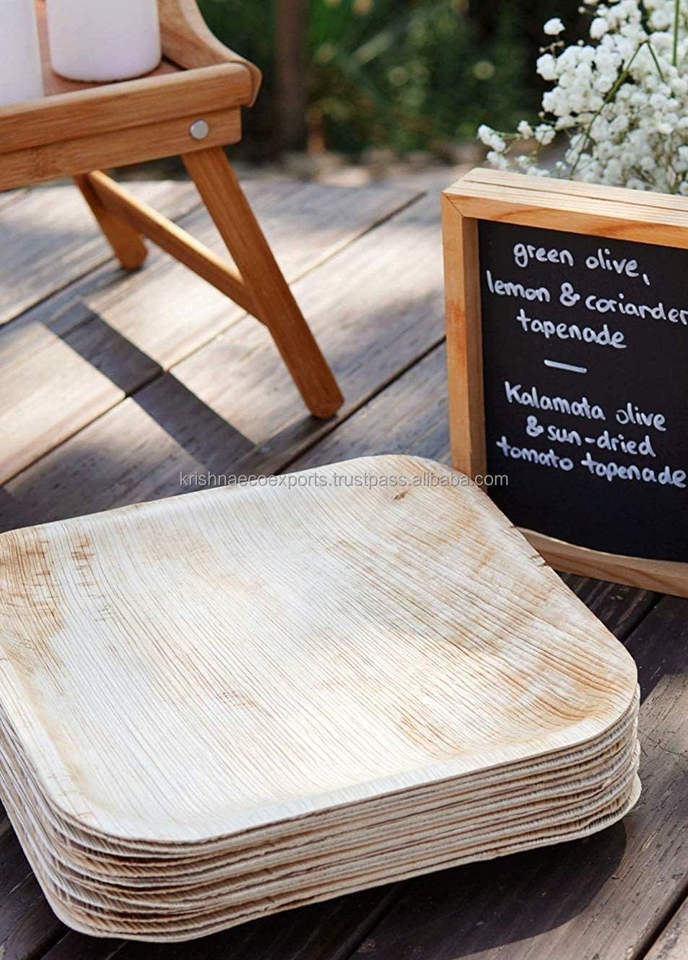 green olive,
lemon & coriander
tapenade
—
Kalamata olive
& sun-dried
tomato tapenade
krishnaecoexports.trustpass.alibaba.com